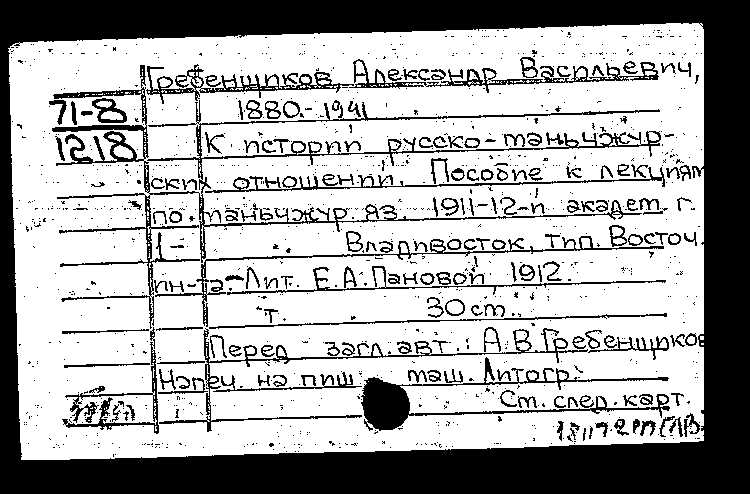 Гребенщиков, Александр Васильевич,
71-8 1880.-1941
1218 К истории русско-маньчжур-
ских отношений. Пособие к лекциям
по маньчжур. яз. 1911-12-й академ. г.
1- Владивосток, тип. Восточ.
ин-та-Лит. Е.А. Пановой, 1912.
т. 30 см.
Перед загл. авт.: А.В. Гребенщиков
Напеч. на пиш. маш. Литогр.
См. след. карт.